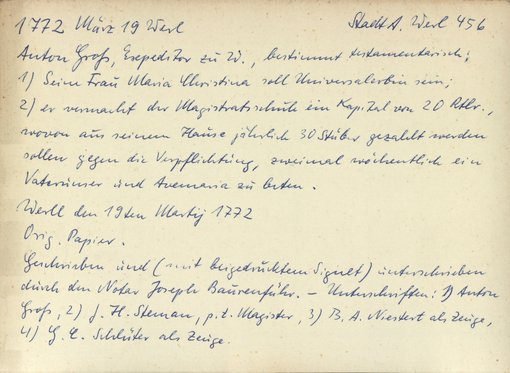 1772 März 19 Werl Stadt A. Werl 456
Anton Groß, Expeditor zu W., bestimmt testamentarisch:
1) Seine Frau Maria Christina soll Universalerbin sein;
2) er vermacht der Magistratsschule ein Kapital von 20 Rtlr.,
wovon aus seinem Hause jährlich 30 Stüber gezahlt werden
sollen gegen die Verpflichtung, zweimal wöchentlich ein
Vaterunser und Avemaria zu beten.
Werll den 19ten Martij 1772
Orig. Papier.
Geschrieben und (mit beigedrucktem Signet) unterschrieben
durch den Notar Joseph Baurenführ. – Unterschriften: 1) Anton
Groß, 2) J. H. Steman, p.t. Magister, 3) B. A. Niestert als Zeuge,
4) G. C. Schlüter als Zeuge.